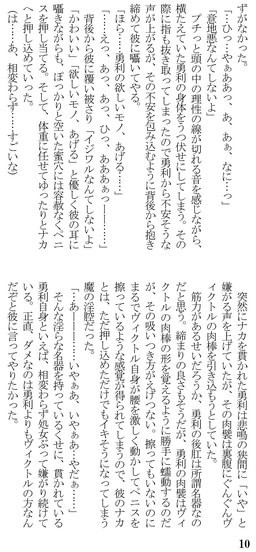 ずがなかった。
「…ひっ…やぁああっ、あ、あぁ、なに…っ」
「意地悪なんてしないよ」
プチっと頭の中の理性の線が切れる音を感じながら、
横たえていた勇利の身体をうつ伏せにしてしまう。その
際に指も抜き取ってしまったので勇利から不安そうな
声が上がるが、その不安を包み込むように背後から抱き
締めて彼に囁いてやる。
「ほら……勇利の欲しいモノ、あげる……」
「……えっ、あっ、あっ、ひっ、あああぁっ―――……」
背後から彼に覆い被さり、「イジワルなんてしないよ」
「かわいい」「欲しいモノ、あげる」と優しく彼の耳に
囁きながらも、ぽっかりと空いた蜜穴には容赦なくペニ
スを押し当てる。そして、体重に任せてゆったりとナカ
へと押し込めていった。
(は……あ、相変わらず……すごいな)
突然にナカを貫かれた勇利は悲鳴の狭間に「いや」と
嫌がる声を上げていたが、その肉襞は裏腹にぐんぐんヴ
ィクトルの肉棒を引き込もうとしていた。
筋力があるせいだろうか、勇利の後肛は所謂名器なの
だと思う。締まりの良さもそうだが、勇利の肉襞はヴィ
クトルの肉棒の形を覚えるように勝手に蠕動するのだ
が、その吸いつき方がえげつない。擦ってもいないのに
まるでヴィクトル自身が腰を激しく動かしてペニスを
擦っているような感覚が得られてしまうので、彼のナカ
とは、ただ押し込めただけでもイキそうになってしまう
魔の淫腔だった。
「…あ―――……いやぁあ、いやぁあやだぁ…」
そんな淫らな名器を持っているくせに、貫かれている
勇利自身といえば、相変わらず処女ぶって嫌がり続けて
いる。正直、ダメなのは勇利よりもヴィクトルの方なん
だぞと彼に言ってやりたかった。
10